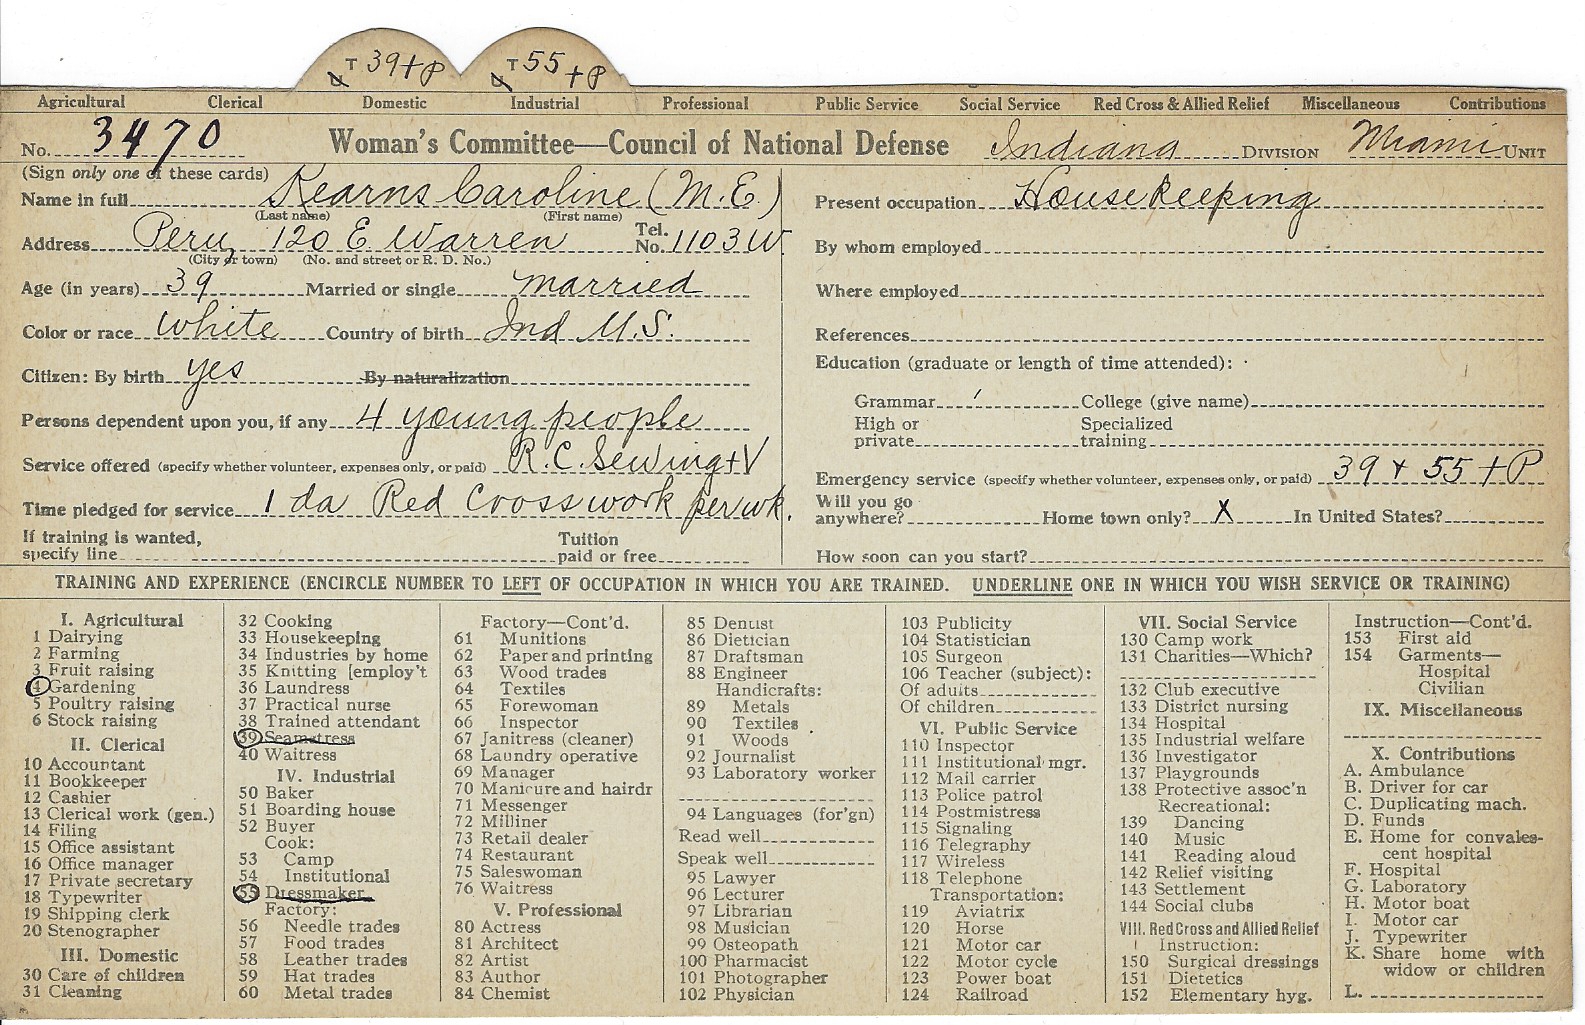 T 39 + P T 55 + P
Agricultural Clerical Domestic Industrial Professional Public Service Social Service Red Cross & Allied Relief Miscellaneous Contributions
No. 3470 Woman's Committee—Council of National Defense Indiana DIVISION Miami UNIT
(Sign only one of these cards)
Name in full Kearns Caroline (M.E.)
(Last name) (First name)
Address Peru, 120 E. Warren Tel. No. 1103 W.
(City or town) (No. and street or R. D. No.)
Age (in years) 39 Married or single married
Color or race White Country of birth Ind U.S.
Citizen: By birth yes By naturalization
Persons dependent upon you, if any 4 young people
Service offered (specify whether volunteer, expenses only, or paid) R.C. Sewing + V
Time pledged for service 1 da Red Cross work per wk.
If training is wanted, specify line Tuition paid or free
Present occupation Housekeeping
By whom employed
Where employed
References
Education (graduate or length of time attended):
Grammar College (give name)
High or private Specialized training
Emergency service (specify whether volunteer, expenses only, or paid) 39 + 55 + P
Will you go anywhere? Home town only? X In United States?
How soon can you start?
TRAINING AND EXPERIENCE (ENCIRCLE NUMBER TO LEFT OF OCCUPATION IN WHICH YOU ARE TRAINED. UNDERLINE ONE IN WHICH YOU WISH SERVICE OR TRAINING)
I. Agricultural
1 Dairying
2 Farming
3 Fruit raising
4 Gardening
5 Poultry raising
6 Stock raising
II. Clerical
10 Accountant
11 Bookkeeper
12 Cashier
13 Clerical work (gen.)
14 Filing
15 Office assistant
16 Office manager
17 Private secretary
18 Typewriter
19 Shipping clerk
20 Stenographer
III. Domestic
30 Care of children
31 Cleaning
32 Cooking
33 Housekeeping
34 Industries by home
35 Knitting [employ't
36 Laundress
37 Practical nurse
38 Trained attendant
39 Seamstress
40 Waitress
IV. Industrial
50 Baker
51 Boarding house
52 Buyer
Cook:
53 Camp
54 Institutional
55 Dressmaker
Factory:
56 Needle trades
57 Food trades
58 Leather trades
59 Hat trades
60 Metal trades
Factory—Cont'd.
61 Munitions
62 Paper and printing
63 Wood trades
64 Textiles
65 Forewoman
66 Inspector
67 Janitress (cleaner)
68 Laundry operative
69 Manager
70 Manicure and hairdr
71 Messenger
72 Milliner
73 Retail dealer
74 Restaurant
75 Saleswoman
76 Waitress
V. Professional
80 Actress
81 Architect
82 Artist
83 Author
84 Chemist
85 Dentist
86 Dietician
87 Draftsman
88 Engineer
Handicrafts:
89 Metals
90 Textiles
91 Woods
92 Journalist
93 Laboratory worker
94 Languages (for'gn)
Read well
Speak well
95 Lawyer
96 Lecturer
97 Librarian
98 Musician
99 Osteopath
100 Pharmacist
101 Photographer
102 Physician
103 Publicity
104 Statistician
105 Surgeon
106 Teacher (subject):
Of adults
Of children
VI. Public Service
110 Inspector
111 Institutional mgr.
112 Mail carrier
113 Police patrol
114 Postmistress
115 Signaling
116 Telegraphy
117 Wireless
118 Telephone
Transportation:
119 Aviatrix
120 Horse
121 Motor car
122 Motor cycle
123 Power boat
124 Railroad
VII. Social Service
130 Camp work
131 Charities—Which?
132 Club executive
133 District nursing
134 Hospital
135 Industrial welfare
136 Investigator
137 Playgrounds
138 Protective assoc'n
Recreational:
139 Dancing
140 Music
141 Reading aloud
142 Relief visiting
143 Settlement
144 Social clubs
VIII. Red Cross and Allied Relief
Instruction:
150 Surgical dressings
151 Dietetics
152 Elementary hyg.
Instruction—Cont'd.
153 First aid
154 Garments—
Hospital
Civilian
IX. Miscellaneous
X. Contributions
A. Ambulance
B. Driver for car
C. Duplicating mach.
D. Funds
E. Home for convales-
cent hospital
F. Hospital
G. Laboratory
H. Motor boat
I. Motor car
J. Typewriter
K. Share home with
widow or children
L.